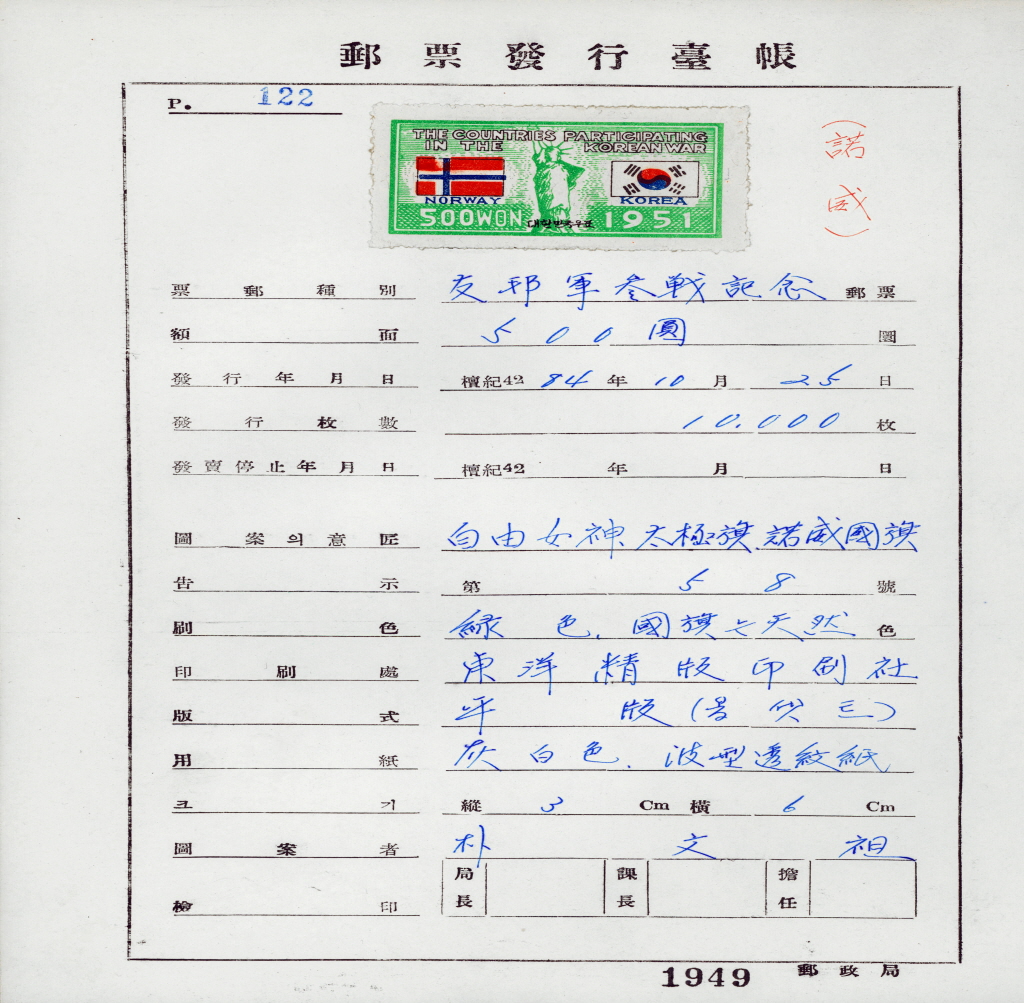 郵票發行臺帳
P. 122
THE COUNTRIES PARTICIPATING
IN THE KOREAN WAR
NORWAY KOREA
500WON 대한민국우표 1951
(諾威)
票郵種別 友邦軍参戦記念 郵票
額面 500圓 圜
發行年月日 檀紀42 84 年 10 月 25 日
發行枚數 10.000 枚
發賣停止年月日 檀紀42 年 月 日
圖案의意匠 自由女神 太極旗 諾威國旗
告示 第 58 號
刷色 緑色. 國旗는天然 色
印刷處 東洋精版印刷社
版式 平版
用紙 灰白色. 波型透紋紙
크기 縱 3 Cm 橫 6 Cm
圖案者 朴文祖
檢印 局長 課長 擔任
1949 郵政局